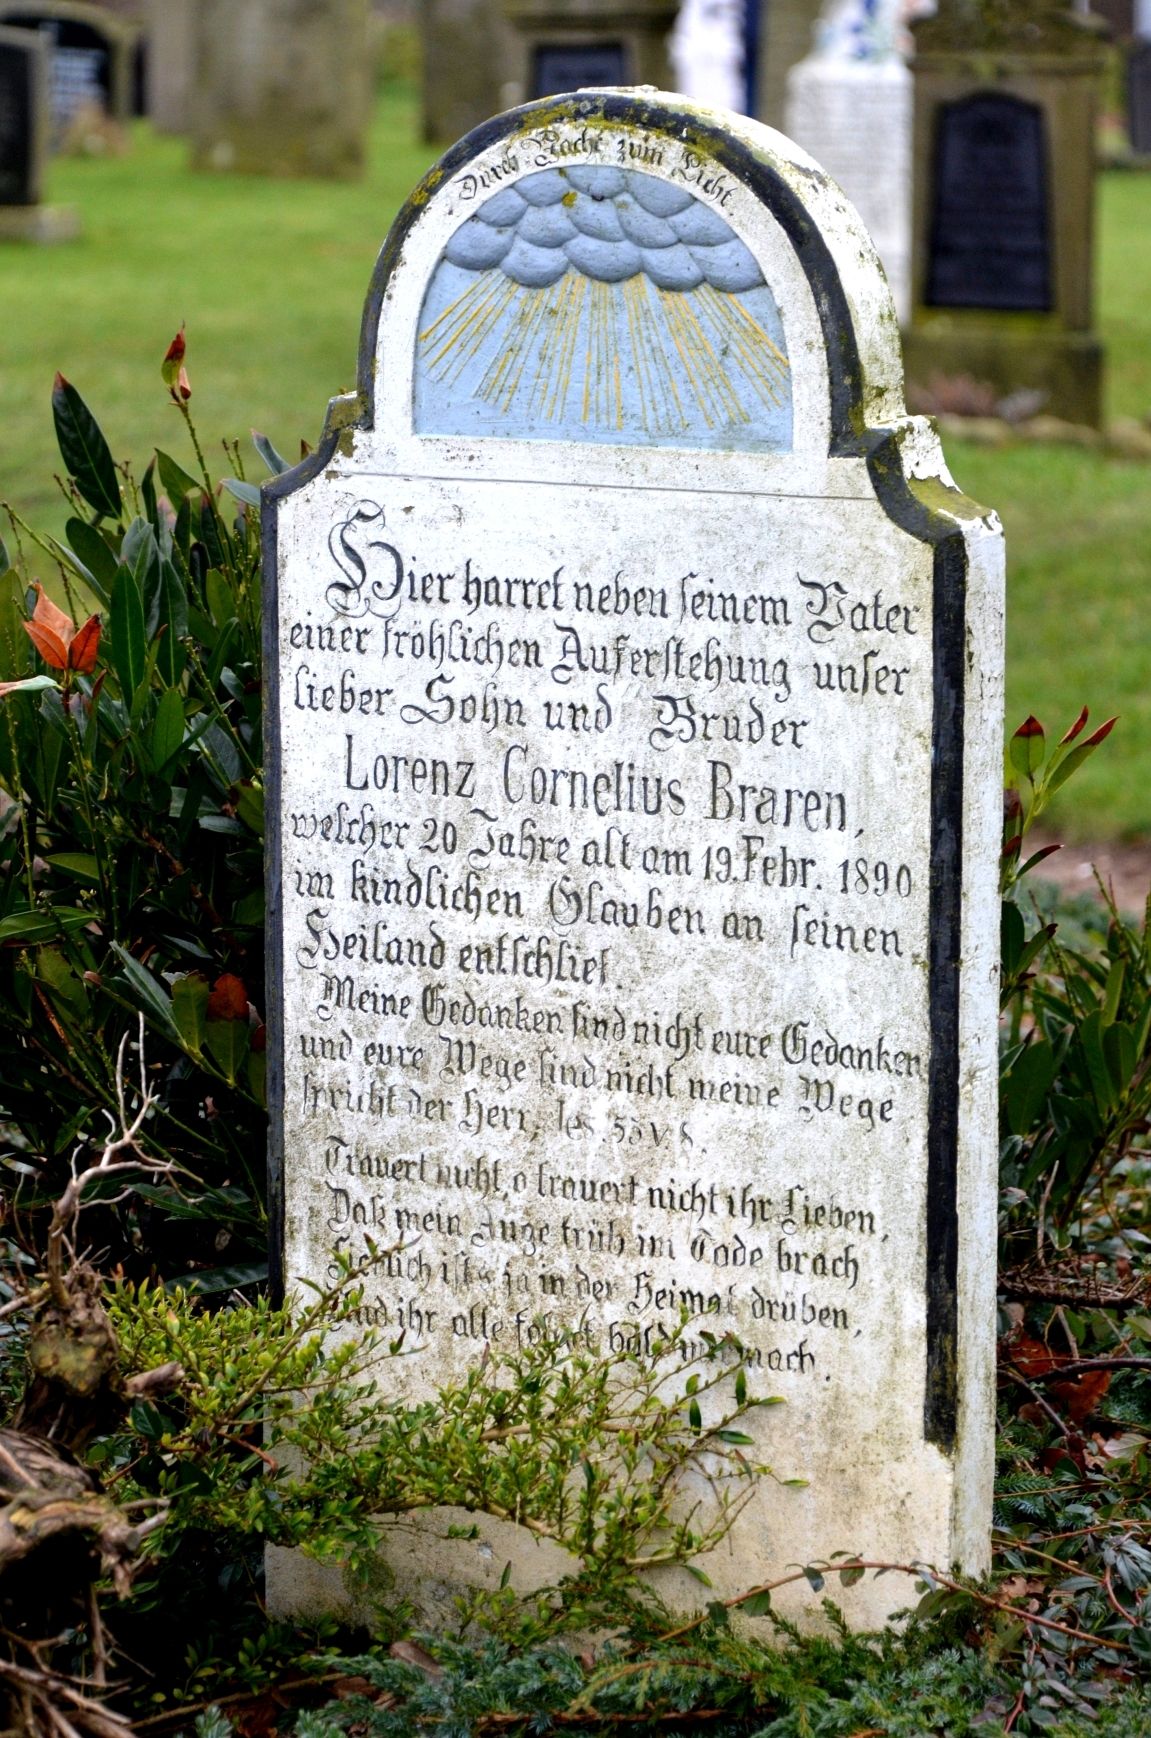 Durch Nacht zum Licht.
Hier harret neben seinem Vater
einer fröhlichen Auferstehung unser
lieber Sohn und Bruder
Lorenz Cornelius Braren,
welcher 20 Jahre alt am 19. Febr. 1890
im kindlichen Glauben an seinen
Heiland entschlief.
Meine Gedanken sind nicht eure Gedanken
und eure Wege sind nicht meine Wege
spricht der Herr, Jes. 55 v. 8.
Trauert nicht, o trauert nicht ihr Lieben,
Daß mein Auge trüb im Tode brach
Seht, ich ja in der Heimat drüben,
Und ihr alle folget bald mir nach.